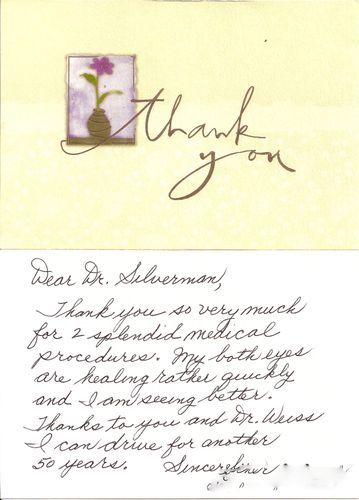 thank
you
Dear Dr. Silverman,
Thank you so very much
for 2 splendid medical
procedures. My both eyes
are healing rather quickly
and I am seeing better.
Thanks to you and Dr. Weiss
I can drive for another
50 years. Sincere